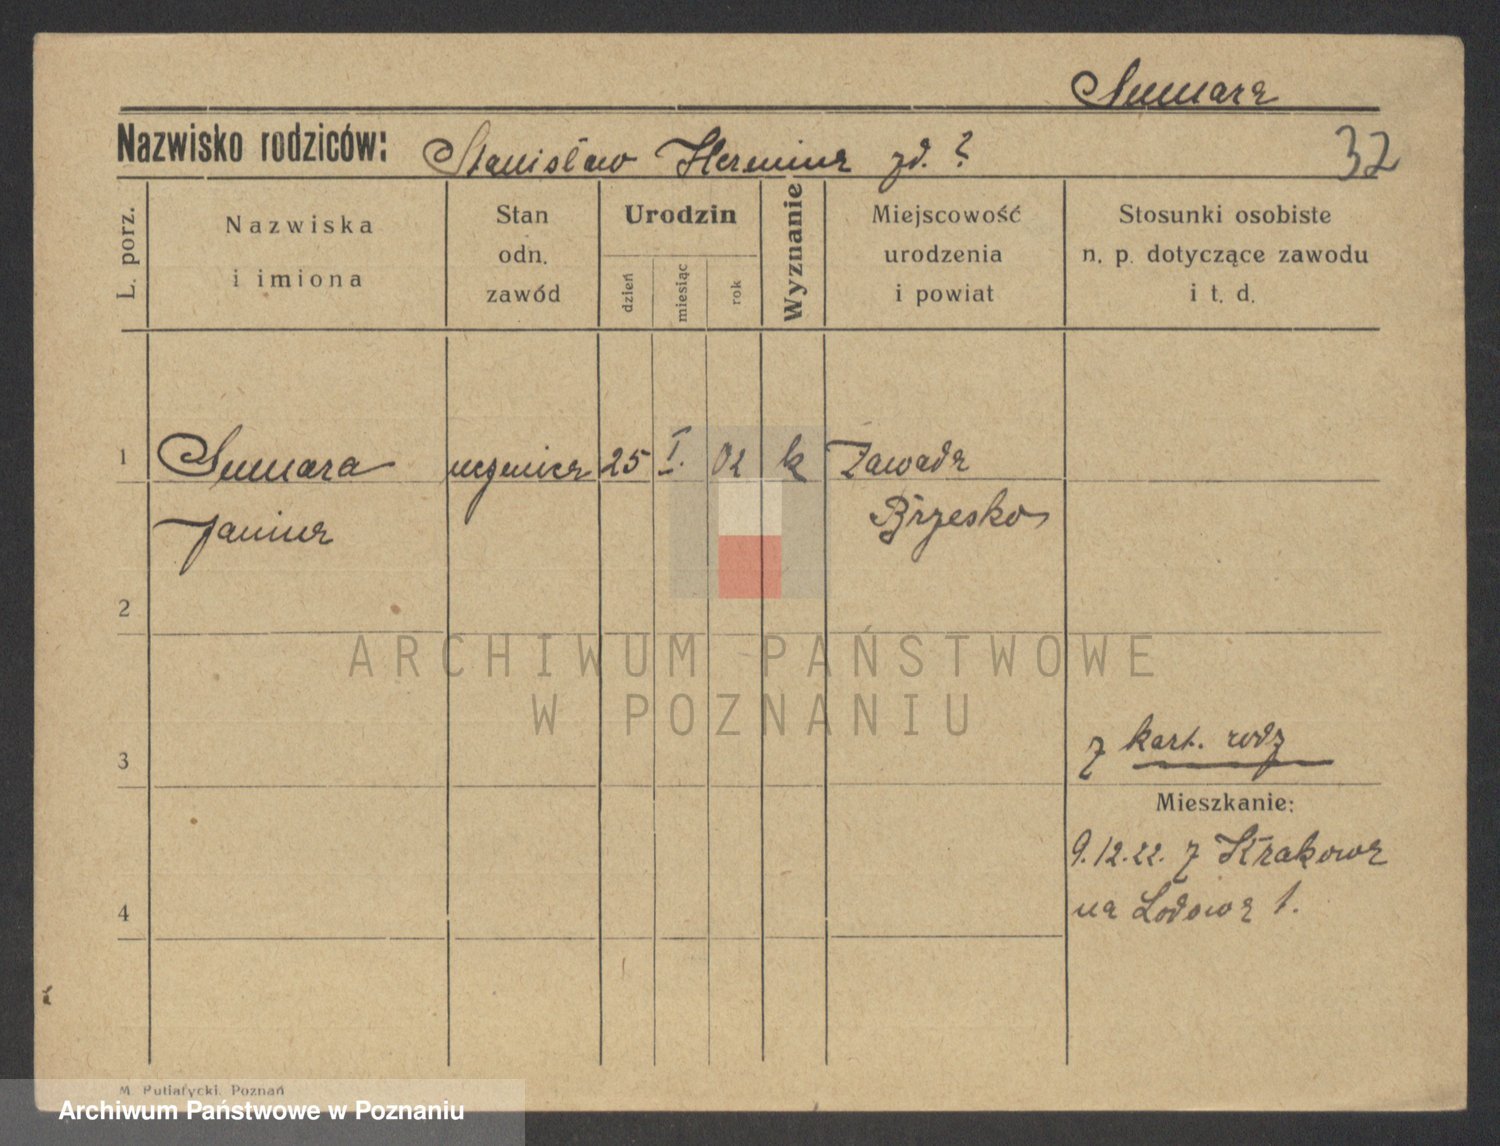 Sumara
Nazwisko rodziców: Stanisław Hermina zd. ?
32
L. porz.
Nazwiska
i imiona
Stan
odn.
zawód
Urodzin
dzień
miesiąc
rok
Wyznanie
Miejscowość
urodzenia
i powiat
Stosunki osobiste
n. p. dotyczące zawodu
i t. d.
1 Sumara uczenica 25 I. 02 k Zawada
Janina Brzesko
2
ARCHIWUM PAŃSTWOWE
W POZNANIU
3 z kart. rodz
Mieszkanie:
9.12.22. z Krakowa
4 na Lodowa 1.
M. Putiatycki, Poznań
Archiwum Państwowe w Poznaniu